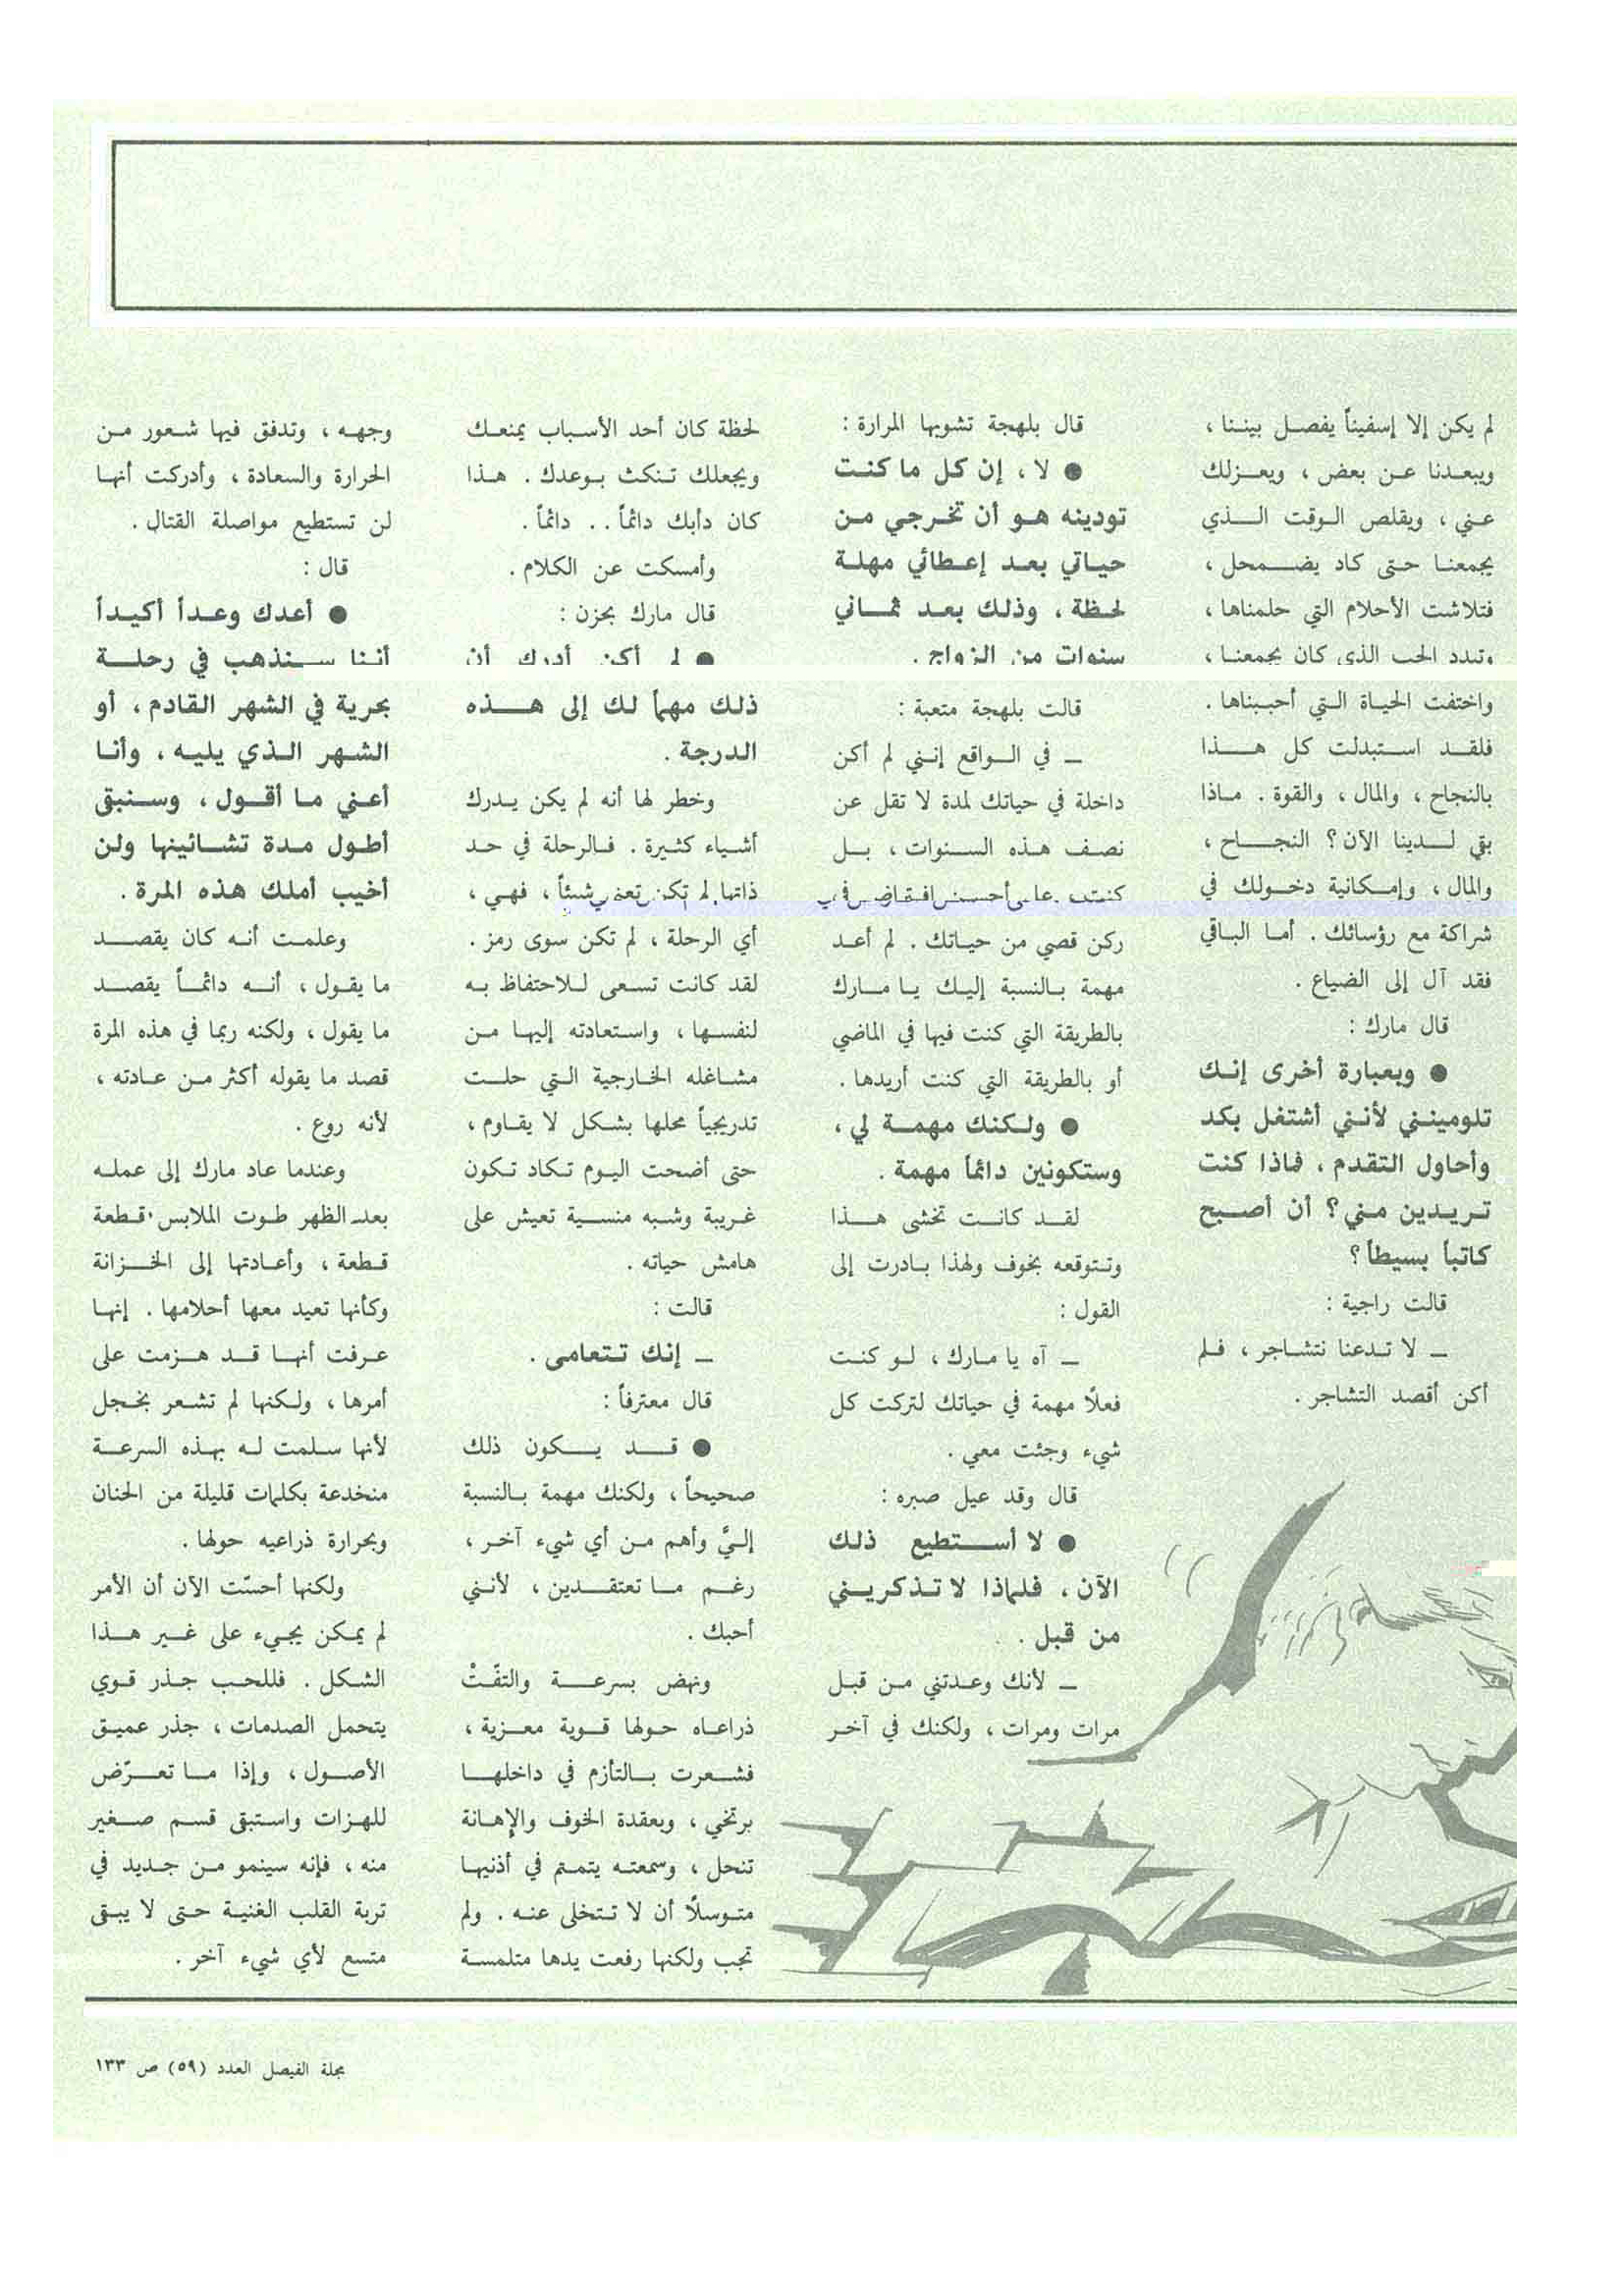 لم يكن إلا إسفيناً يفصل بيننا ،
ويبعدنا عن بعض ، ويعزلك
عني ، ويقلص الوقت الذي
يجمعنا حتى كاد يضمحل ،
فتلاشت الأحلام التي حلمناها ،
وتبدد الحب الذي كان يجمعنا ،
واختفت الحياة التي أحببناها .
فلقد استبدلت كل هذا
بالنجاح ، والمال ، والقوة . ماذا
بقي لدينا الآن ؟ النجاح ،
والمال ، وإمكانية دخولك في
شراكة مع رؤسائك . أما الباقي
فقد آل إلى الضياع .
قال مارك :
● وبعبارة أخرى إنك
تلومينني لأنني أشتغل بكد
وأحاول التقدم ، فماذا كنت
تريدين مني ؟ أن أصبح
كاتباً بسيطاً ؟
قالت راجية :
ــ لا تدعنا نتشاجر ، فلم
أكن أقصد التشاجر .
قال بلهجة تشوبها المرارة :
● لا ، إن كل ما كنت
تودينه هو أن تخرجي من
حياتي بعد إعطائي مهلة
لحظة ، وذلك بعد ثماني
سنوات من الزواج .
قالت بلهجة متعبة :
ــ في الواقع إنني لم أكن
داخلة في حياتك لمدة لا تقل عن
نصف هذه السنوات ، بل
كنت على أحسن افتراض في
ركن قصي من حياتك . لم أعد
مهمة بالنسبة إليك يا مارك
بالطريقة التي كنت فيها في الماضي
أو بالطريقة التي كنت أريدها .
● ولكنك مهمة لي ،
وستكونين دائماً مهمة .
لقد كانت تخشى هذا
وتتوقعه بخوف ولهذا بادرت إلى
القول :
ــ آه يا مارك ، لو كنت
فعلاً مهمة في حياتك لتركت كل
شيء وجئت معي .
قال وقد عيل صبره :
● لا أستطيع ذلك
الآن ، فلماذا لا تذكريني
من قبل .
ــ لأنك وعدتني من قبل
مرات ومرات ، ولكنك في آخر
لحظة كان أحد الأسباب يمنعك
ويجعلك تنكث بوعدك . هذا
كان دأبك دائماً .. دائماً .
وأمسكت عن الكلام .
قال مارك بحزن :
● لم أكن أدرك أن
ذلك مهماً لك إلى هذه
الدرجة .
وخطر لها أنه لم يكن يدرك
أشياء كثيرة . فالرحلة في حد
ذاتها لم تكن تعني شيئاً ، فهي ،
أي الرحلة ، لم تكن سوى رمز .
لقد كانت تسعى للاحتفاظ به
لنفسها ، واستعادته إليها من
مشاغله الخارجية التي حلت
تدريجياً محلها بشكل لا يقاوم ،
حتى أضحت اليوم تكاد تكون
غريبة وشبه منسية تعيش على
هامش حياته .
قالت :
ــ إنك تتعامى .
قال معترفاً :
● قد يكون ذلك
صحيحاً ، ولكنك مهمة بالنسبة
إليَّ وأهم من أي شيء آخر ،
رغم ما تعتقدين ، لأنني
أحبك .
ونهض بسرعة والتفّتْ
ذراعاه حولها قوية معزية ،
فشعرت بالتأزم في داخلها
يرتخي ، وبعقدة الخوف والإهانة
تنحل ، وسمعته يتمتم في أذنيها
متوسلاً أن لا تتخلى عنه . ولم
تجب ولكنها رفعت يدها متلمسة
وجهه ، وتدفق فيها شعور من
الحرارة والسعادة ، وأدركت أنها
لن تستطيع مواصلة القتال .
قال :
● أعدك وعداً أكيداً
أننا سنذهب في رحلة
بحرية في الشهر القادم ، أو
الشهر الذي يليه ، وأنا
أعني ما أقول ، وسنبقى
أطول مدة تشائينها ولن
أخيب أملك هذه المرة .
وعلمت أنه كان يقصد
ما يقول ، أنه دائماً يقصد
ما يقول ، ولكنه ربما في هذه المرة
قصد ما يقوله أكثر من عادته ،
لأنه روع .
وعندما عاد مارك إلى عمله
بعد الظهر طوت الملابس قطعة
قطعة ، وأعادتها إلى الخزانة
وكأنها تعيد معها أحلامها . إنها
عرفت أنها قد هزمت على
أمرها ، ولكنها لم تشعر بخجل
لأنها سلمت له بهذه السرعة
منخدعة بكلمات قليلة من الحنان
وبحرارة ذراعيه حولها .
ولكنها أحسّت الآن أن الأمر
لم يمكن يجيء على غير هذا
الشكل . فللحب جذر قوي
يتحمل الصدمات ، جذر عميق
الأصول ، وإذا ما تعرّض
للهزات واستبقى قسم صغير
منه ، فإنه سينمو من جديد في
تربة القلب الغنية حتى لا يبقى
متسع لأي شيء آخر .
مجلة الفيصل العدد (٥٩) ص ١٣٣